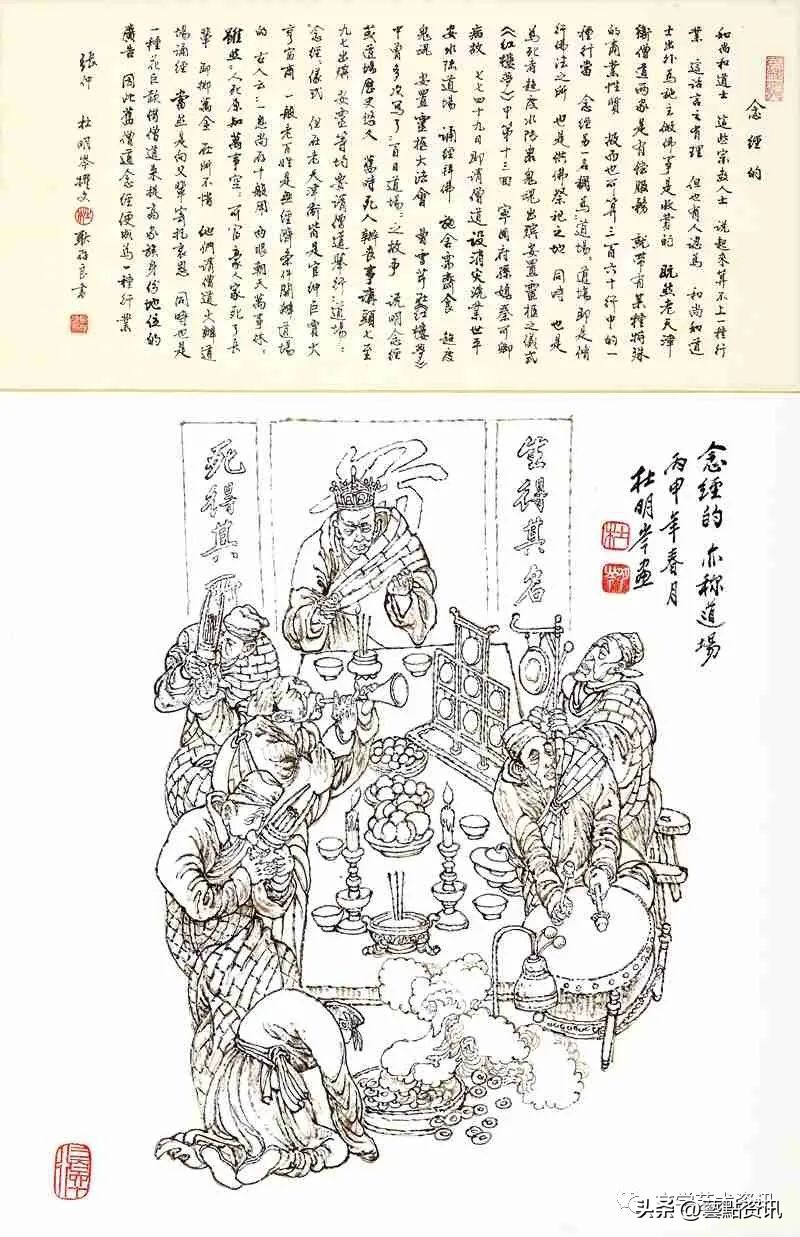 念經的
和尚和道士 這些宗教人士 説起來算不上一種行
業 這話言之有理 但也有人認爲 和尚和道
士出外爲施主做佛事是收費的 既然老天津
衛僧道兩家是有償服務 就帶有某種特殊
的商業性質 故而也可算三百六十行中的一
種行當 念經另一名稱爲道場 道場即是修
行佛法之所 也是供佛祭祀之地 同時 也是
爲死者超度水陸衆鬼魂出殯安置靈柩之儀式
《紅樓夢》中第十三回 寧國府孫媳秦可卿
病故 七七四十九日即請僧道 設消灾洗業世平
安水陸道場 誦經拜佛 施全齋食 超度
鬼魂 安置靈柩大法會 曹雪芹在《紅樓夢》
中曾多次寫了三百日道場之故事 説明念經
或道場歷史悠久 舊時死人辦喪事講頭七至
九七出殯 安靈等均要請僧道舉行“道場”
“念經”儀式 但在老天津衛皆是官紳巨賈大
亨富商 一般老百姓是無經濟條件開辦道場
的 古人云 息尚存十般用 兩眼朝天萬事休
雖然“人死原知萬事空” 可富豪人家死了長
輩 即擲萬金 在所不惜 他們請僧道大辦道
場誦經 當然是向父輩寄托哀思 同時也是
一種花巨款借僧道來提高家族身份地位的
廣告 因此舊僧道念經便成爲一種行業
張仲 杜明岑撰文 耿福良書
念經的 亦称道場
丙申年春月
杜明岑画
生得其名
死得其所
头条 @藝點资讯